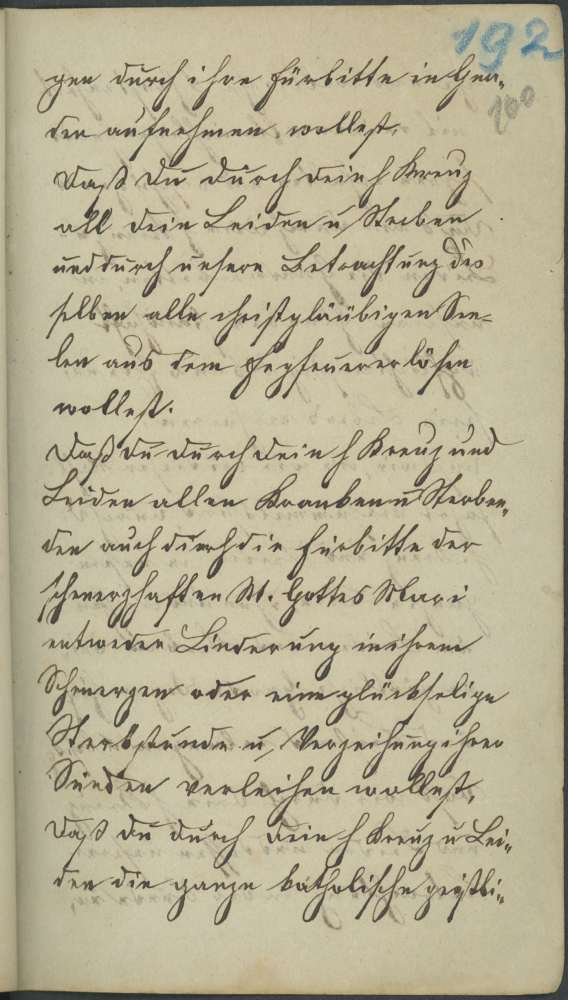 192
100
gen durch ihre Fürbitte in Gna„
den aufnehmen wollest,
Daß Du durch dein h Kreuz
all dein Leiden u, Sterben
und durch unsere Betrachtung des
selben alle christgläubigen See=
len aus dem Fegfeuer erlösen
wollest.
Daß du durch dein h Kreuz und
Leiden allen Kranken u Sterben„
den auch durch die Fürbitte der
schmerzhaften M. Gottes Mari
entweder Linderung in ihrem
Schmerzen oder eine glückselige
Sterbstunde u, Verzeihung ihrer
Sünden verleihen wollest,
Daß du durch dein h Kreuz u Lei„
den die ganze katholische geistli„